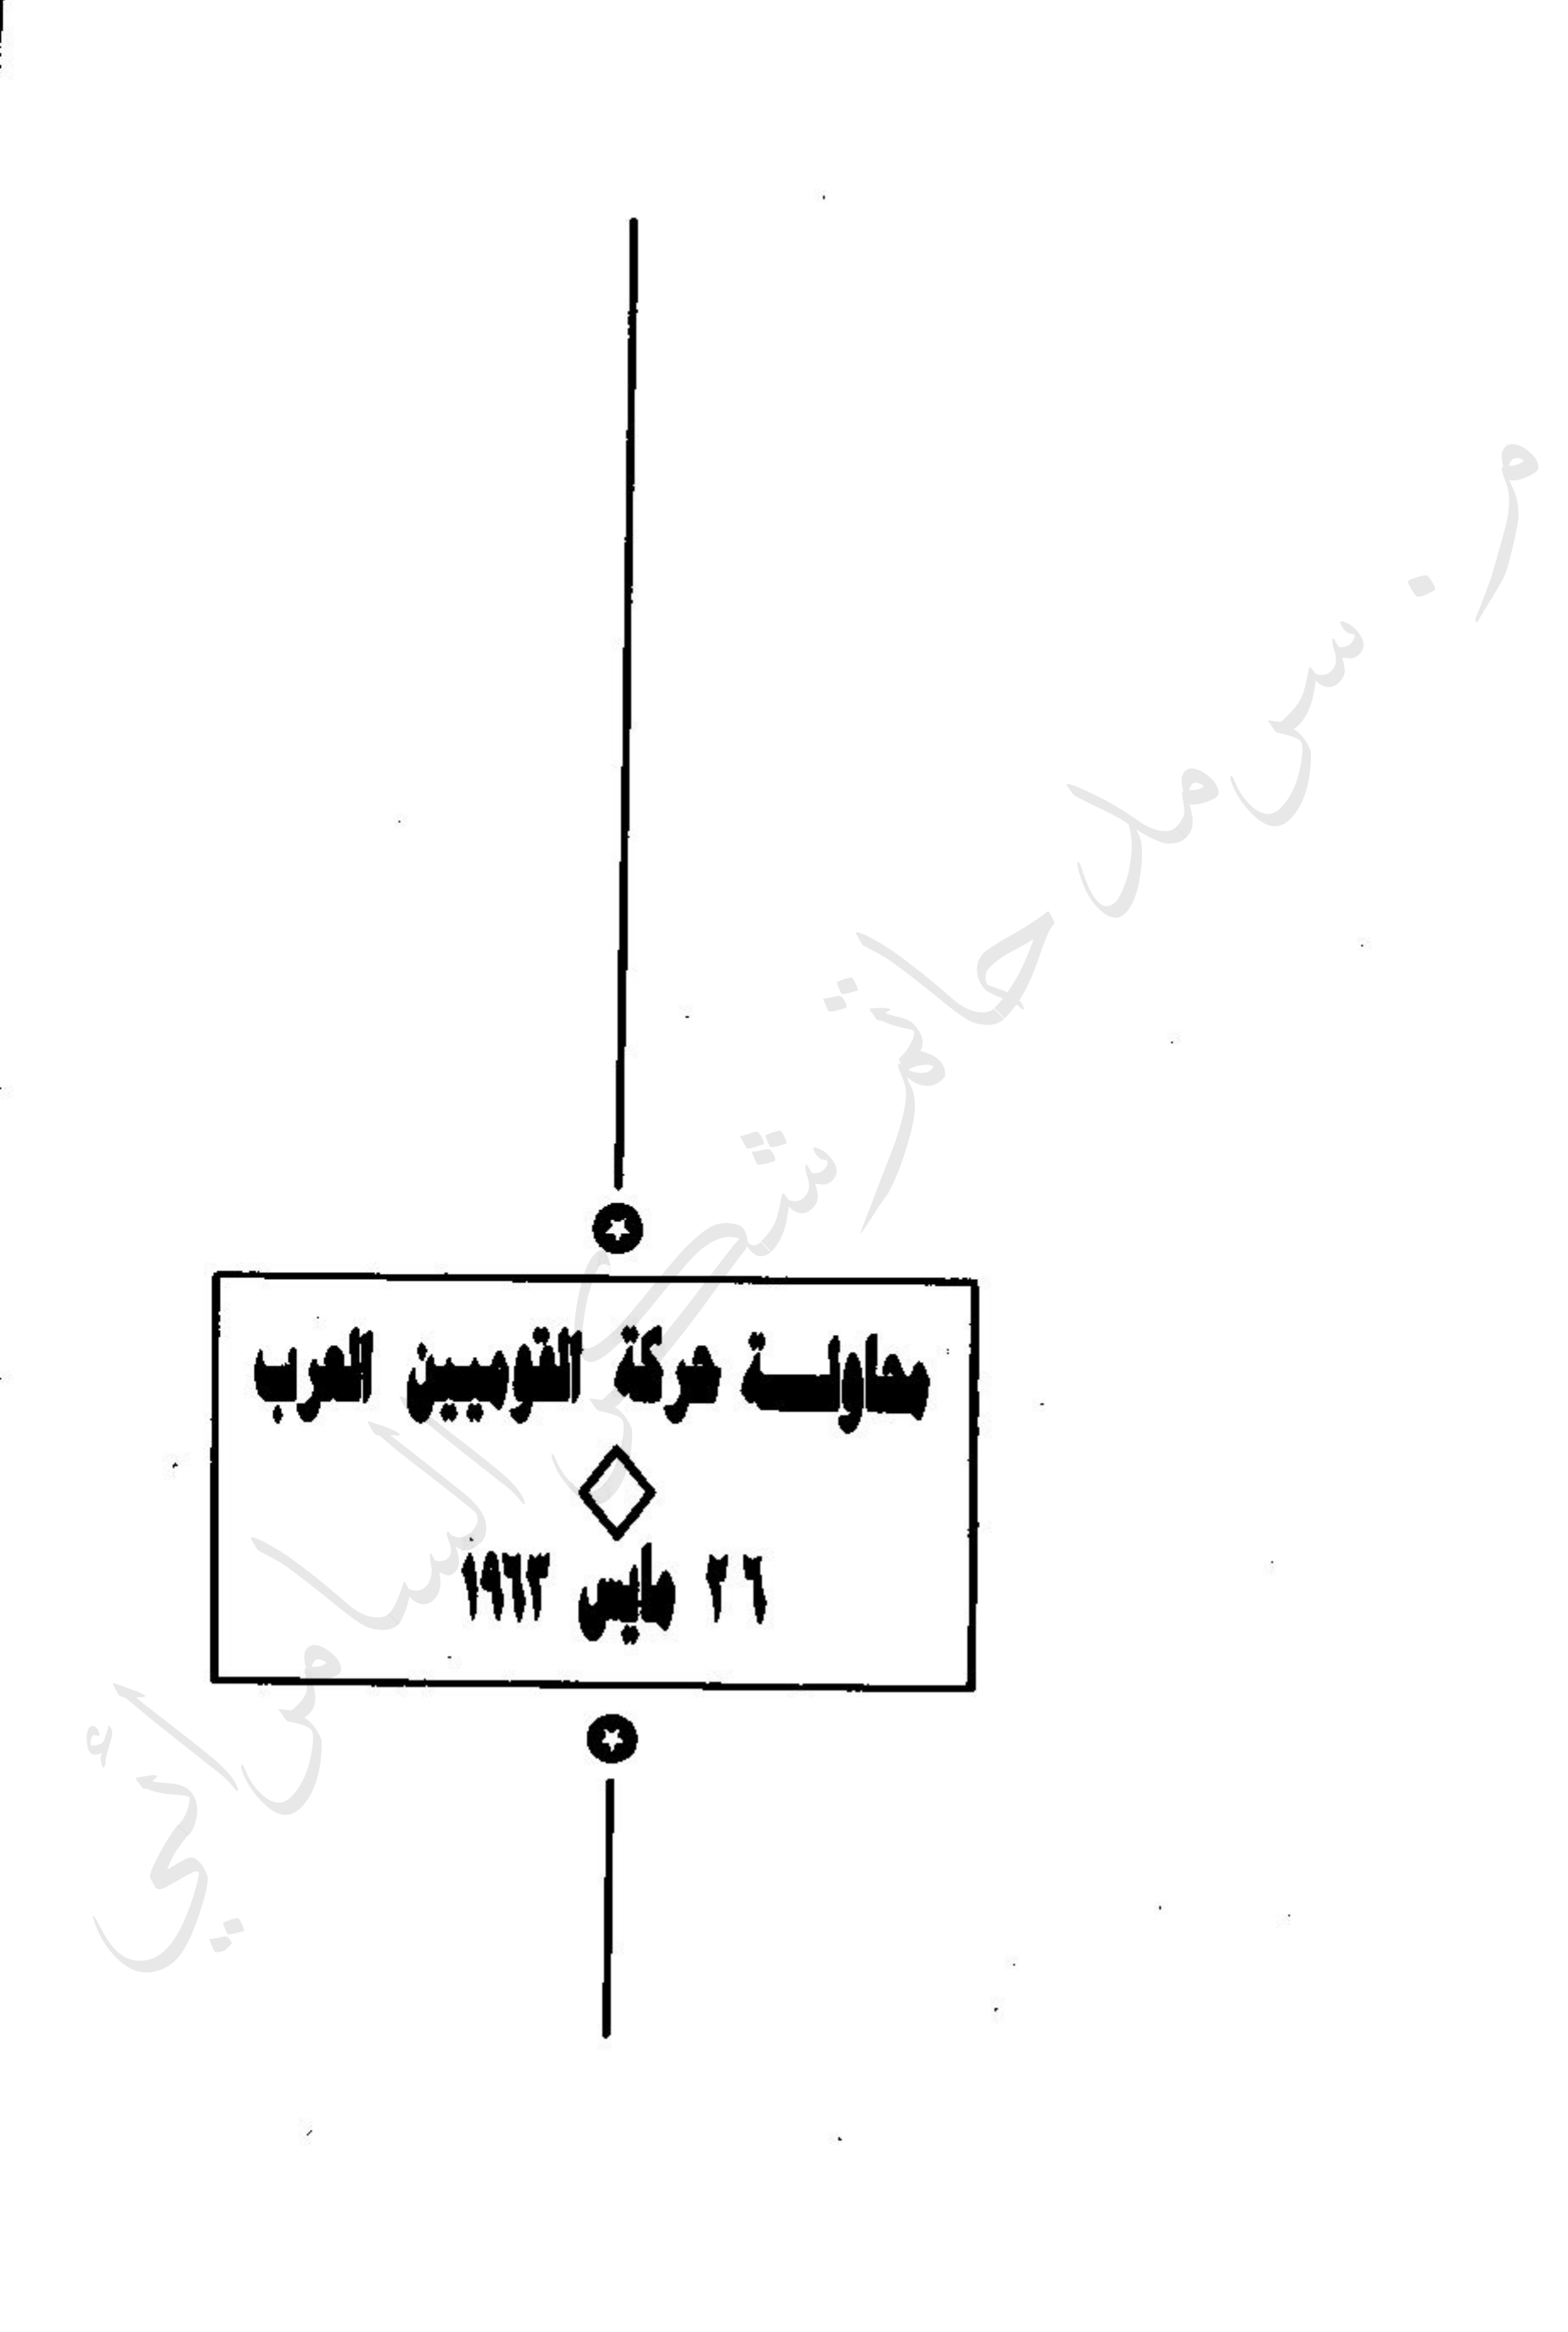 محاولة حركة القوميين العرب
٢٦ مايس ١٩٦٣
م. سرمد حاتم شكر السامرائي